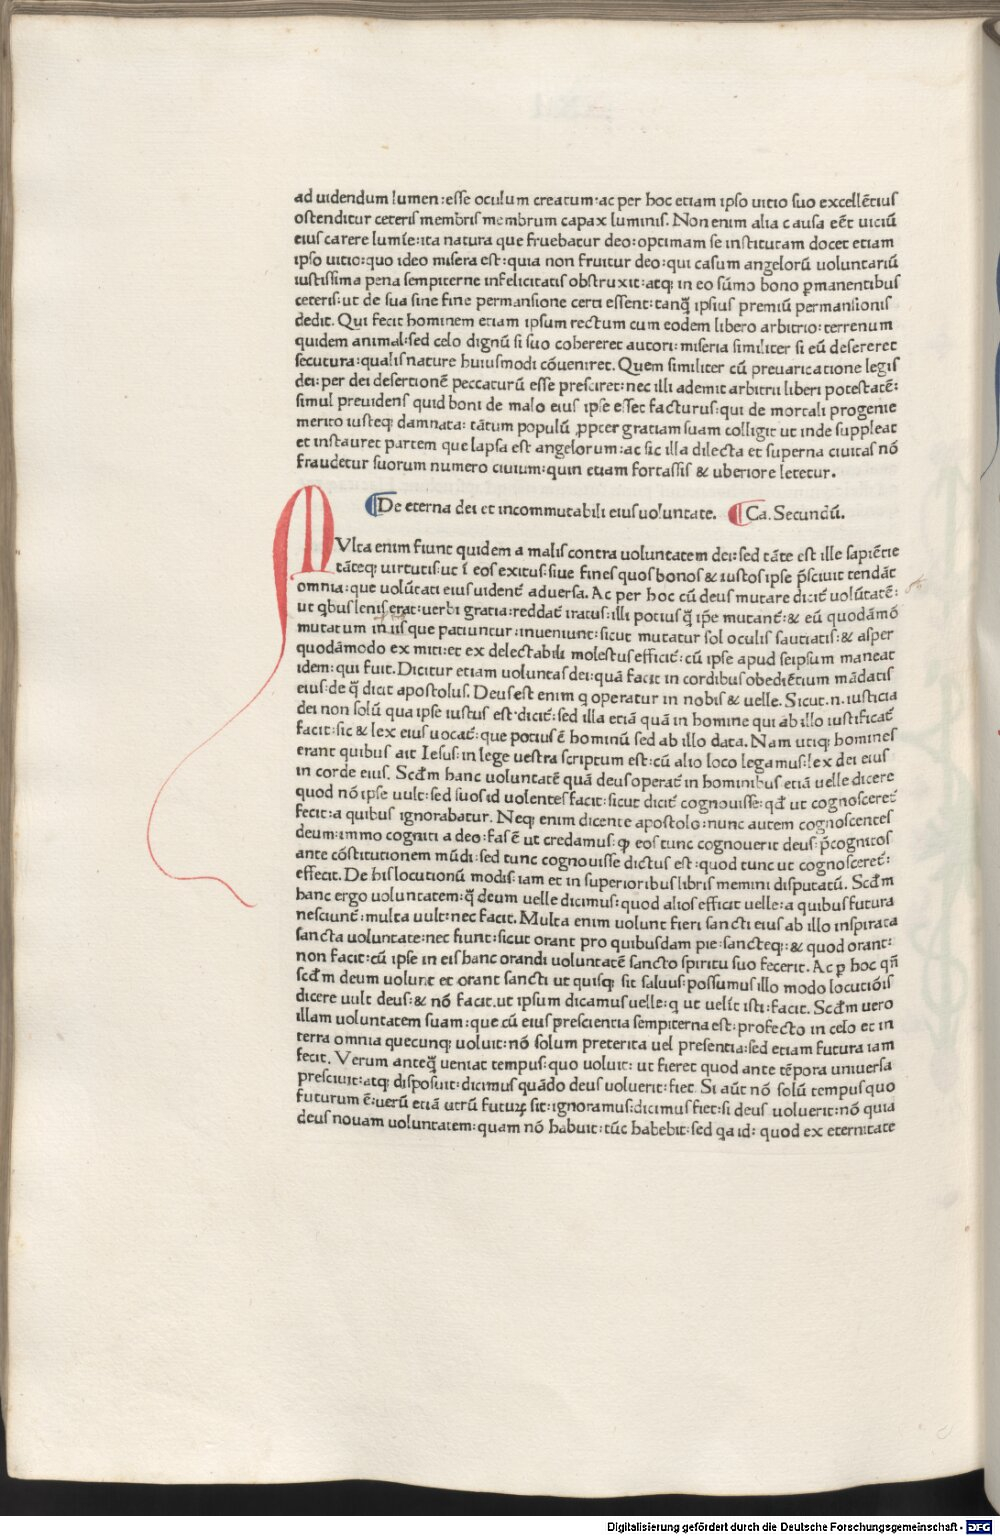 ad uidendum lumen:esse oculum creatum:ac per hoc etiam ipso uitio suo excellẽtius
ostenditur ceteris membris membrum capax luminis. Non enim alia causa eẽt uiciũ
eius carere lumĩe:ita natura que fruebatur deo:optimam se institutam docet etiam
ipso uitio:quo ideo misera est:quia non fruitur deo:qui casum angelorũ uoluntariũ
iustissima pena sempiterne infelicitatis obstruxit:atq; in eo sũmo bono ꝑmanentibus
ceteris:ut de sua sine fine permansione certi essent:tanq̃ ipsius premiũ permansionis
dedit. Qui fecit hominem etiam ipsum rectum cum eodem libero arbitrio:terrenum
quidem animal:sed celo dignũ si suo cobereret autori:miseria similiter si eũ desereret
secutura:qualis nature huiusmodi cõueniret. Quem similiter cũ preuaricatione legis
dei:per dei desertionẽ peccaturũ esse presciret:nec illi ademit arbitrii liberi potestatẽ:
simul preuidens quid boni de malo eius ipse esset facturus:qui de mortali progenie
merito iusteq; damnata: tãtum populũ ꝓpter gratiam suam colligit ut inde suppleat
et instauret partem que lapsa est angelorum:ac sic illa dilecta et superna ciuitas nõ
fraudetur suorum numero ciuium:quin etiam fortassis & uberiore letetur.
¶De eterna dei et incommutabili eius uoluntate. ¶Ca. Secundũ.
MVlta enim fiunt quidem a malis contra uoluntatem dei:sed tãte est ille sapiẽtie
tãteq; uirtutis:ut ĩ eos exitus:siue fines quos bonos & iustos ipse p̃sciuit tendãt
omnia:que volũtati eius uident̃ aduersa. Ac per hoc cũ deus mutare dicit̃ volũtatẽ:
ut qbus lenis erat:uerbi gratia:reddat̃ iratus:illi potius q̃ ip̃e mutant̃:& eũ quodãmõ
mutatum in iis que patiuntur:inueniunt:sicut mutatur sol oculis sautiatis:& asper
quodãmodo ex miti:et ex delectabili molestus efficit̃:cũ ipse apud seipsum maneat
idem:qui fuit. Dicitur etiam uoluntas dei:quã facit in cordibus obediẽtium mãdatis
eius:de q̃ dicit apostolus. Deus est enim q operatur in nobis & uelle. Sicut.n.iusticia
dei non solũ qua ipse iustus est:dicit̃:sed illa etiã quã in homine qui ab illo iustificat̃
facit:sic & lex eius uocat̃:que potius ẽ hominũ sed ab illo data. Nam utiq; homines
erant quibus ait Iesus:in lege uestra scriptum est:cũ alio loco legamus:lex dei eius
in corde eius. Scd̃m hanc voluntatẽ quã deus operat̃ in hominibus etiã uelle dicere
quod nõ ipse uult:sed suos id uolentes facit:sicut dicit̃ cognouisse:qd̃ ut cognosceret̃
fecit:a quibus ignorabatur. Neq; enim dicente apostolo:nunc autem cognoscentes
deum:immo cogniti a deo:fas ẽ ut credamus:ꝙ eos tunc cognouerit deus:p̃cognitos
ante cõstitutionem mũdi:sed tunc cognouisse dictus est:quod tunc ut cognosceret̃:
effecit. De his locutionũ modis:iam et in superioribus libris memini disputatũ. Scd̃m
hanc ergo uoluntatem:q̃ deum uelle dicimus:quod alios efficit uelle:a quibus futura
nesciunt̃:multa uult:nec facit. Multa enim uolunt fieri sancti eius ab illo inspirata
sancta uoluntate:nec fiunt:sicut orant pro quibusdam pie:sancteq;:& quod orant:
non facit:cũ ipse in eis hanc orandi uoluntatẽ sancto spiritu suo fecerit. Ac ꝑ hoc qñ
scd̃m deum uolunt et orant sancti ut quisq; sit saluus:possumus illo modo locutiõis
dicere uult deus:& nõ facit.ut ipsum dicamus uelle:q ut uelĩt isti:facit. Scd̃m uero
illam uoluntatem suam:que cũ eius prescientia sempiterna est:profecto in celo et in
terra omnia quecunq; uoluit:nõ solum preterita uel presentia:sed etiam futura iam
fecit. Verum anteq̃ ueniat tempus:quo uoluit: ut fieret quod ante tẽpora uniuersa
presciuit:atq; disposuit:dicimus quãdo deus uoluerit:fiet. Si aũt nõ solũ tempus quo
futurum ẽ:uerũ etiã utrũ futuꝝ sit:ignoramus:dicimus fiet:si deus uoluerit:nõ quia
deus nouam uoluntatem:quam nõ habuit:tũc habebit:sed qa id: quod ex eternitate
Digitalisierung gefördert durch die Deutsche Forschungsgemeinschaft - DFG